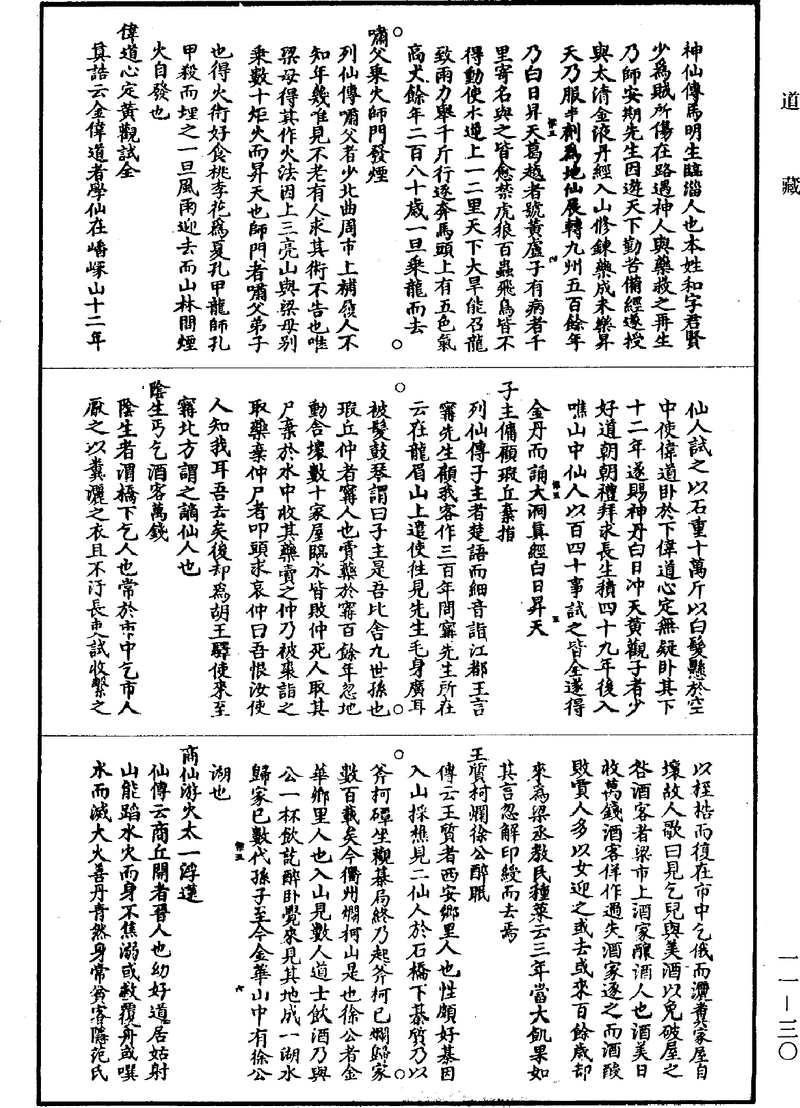 道藏
神仙傳馬明生臨淄人也本姓和字君賢
少為賊所傷在路遇神人與藥救之再生
乃師安期先生因遊天下勤苦備經遂授
與太清金液丹經入山修鍊藥成未樂昇
天乃服半劑為地仙展轉九州五百餘年
乃白日昇天葛越者號黃盧子有病者千
里寄名與之皆愈禁虎狼百蟲飛鳥皆不
得動使水逆上一二里天下大旱能召龍
致雨力舉千斤行逐奔馬頭上有五色氣
高丈餘年二百八十歲一旦乘龍而去
嘯父乘火師門發煙
列仙傳嘯父者少北曲周市上補履人不
知年幾唯見不老有人求其術不告也唯
梁母得其作火法因上三亮山與梁母別
乘數十炬火而昇天也師門者嘯父弟子
也得火術好食桃李花為夏孔甲龍師孔
甲殺而埋之一旦風雨迎去而山林間煙
火自發也
偉道心定黃觀試全
真誥云金偉道者學仙在嶓嵘山十二年
仙人試之以石重十萬斤以白髮懸於空
中使偉道卧於下偉道心定無疑卧其下
十二年遂賜神丹白日冲天黃觀子者少
好道朝朝禮拜求長生積四十九年後入
嶕山中仙人以百四十事試之皆全遂得
金丹而誦大洞真經白日昇天
子主傭顧瑕丘棄指
列仙傳子主者楚語而細音詣江都王言
甯先生顧我客作三百年問甯先生所在
云在龍眉山上遣使往見先生毛身廣耳
被髮鼓琴謂曰子主是吾比舍九世孫也
瑕丘仲者甯人也賣藥於甯百餘年忽地
動舍壞數十家屋臨水皆敗仲死人取其
尸棄於水中收其藥賣之仲乃被裘詣之
取藥棄仲尸者叩頭求哀仲曰吾恨汝使
人知我耳吾去矣後却為胡王驛使來至
甯北方謂之謫仙人也
陰生丐乞酒客萬錢
陰生者渭橋下乞人也常於市中乞市人
厭之以糞灑之衣且不汙長吏試收繫之
以桎梏而復在市中乞俄而灑糞家屋自
壞故人歌曰見乞兒與美酒以免破屋之
咎酒客者梁市上酒家釀酒人也酒美日
收萬錢酒客佯作過失酒家逐之而酒酸
敗賣人多以女迎之或去或來百餘歲却
來為梁丞教民種菜云三年當大飢果如
其言忽解印綬而去焉
王質柯爛徐公醉眠
傳云王質者西安鄉里人也性頗好棊因
入山採樵見二仙人於石橋下棊質乃以
斧柯磹坐觀棊局終乃起斧柯已爛歸家
數百載矣今衢州爛柯山是也徐公者金
華鄉里人也入山見數人道士飲酒乃與
公一杯飲訖醉卧覺來見其地成一湖水
歸家已數代孫子至今金華山中有徐公
湖也
商仙游火太一浮蓮
仙傳云商丘開者晉人也幼好道居姑射
山能蹈水火而身不焦溺或敝覆舟或噀
水而滅大火善丹青然身常貧客隱范氏
一一—三〇